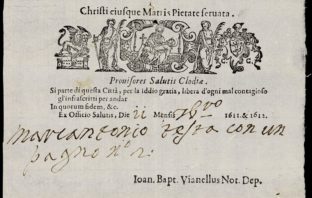 Christi eiusque Matris Pietate seruata.
Prouisores Salutis Clodiæ.
Si parte di questa Città, per la Iddio gratia, libera d'ogni mal contagioso
gl'infrascritti per andar
In quorum fidem. &c.
Ex Officio Salutis, Die ii Mensis 1611. & 1612.
Marcantonio Testa con un
pagno nº 2.
Ioan. Bapt. Vianellus Not. Dep.